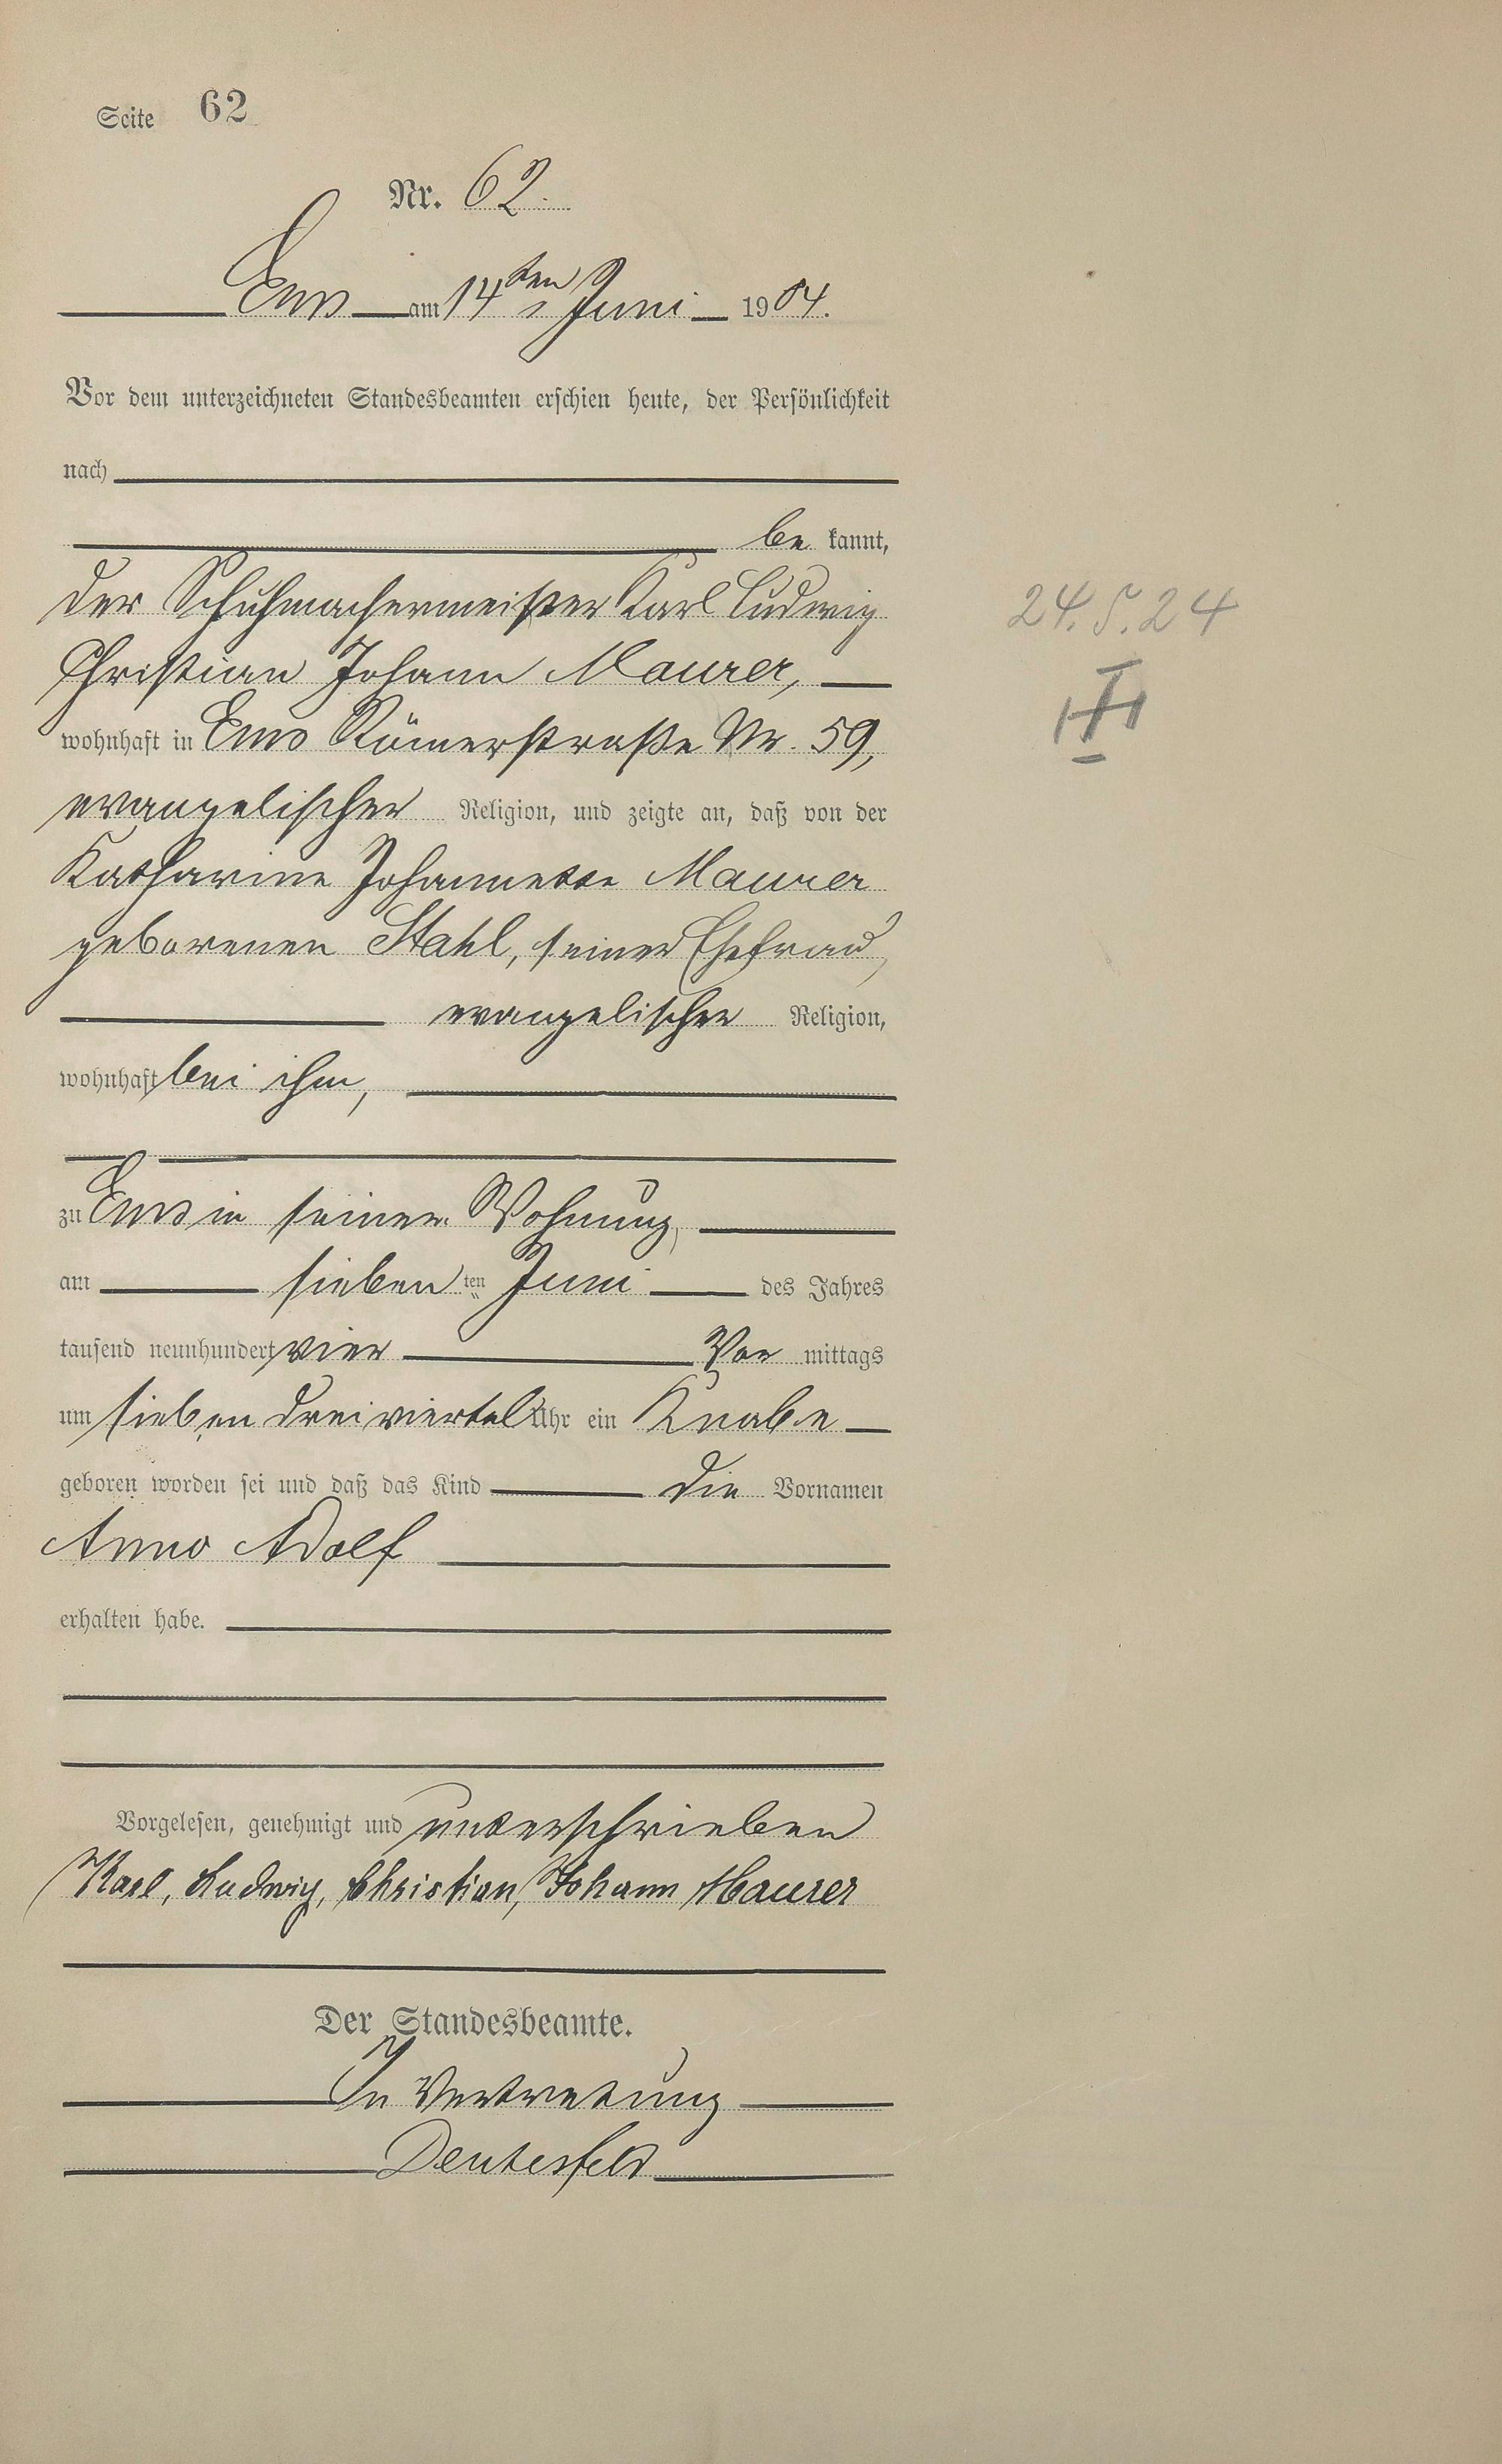 Seite 62
Nr. 62.
Ems am 14ten Juni 1904.
Vor dem unterzeichneten Standesbeamten erschien heute, der Persönlichkeit
nach
be kannt,
der Schuhmachermeister Karl Ludwig
Christian Johann Maurer,
wohnhaft in Ems Römerstraße Nr. 59,
evangelischer Religion, und zeigte an, daß von der
Katharine Johannette Maurer
geborenen Stahl, seiner Ehefrau,
evangelischer Religion,
wohnhaft bei ihm,
zu Ems in seiner Wohnung,
am sieben ten Juni des Jahres
tausend neunhundert vier Vor mittags
um sieben dreiviertel Uhr ein Knabe
geboren worden sei und daß das Kind die Vornamen
Anno Adolf
erhalten habe.
Vorgelesen, genehmigt und unterschrieben
Karl, Ludwig, Christian, Johann Maurer
Der Standesbeamte.
In Vertretung
Deutesfeld
24.5.24